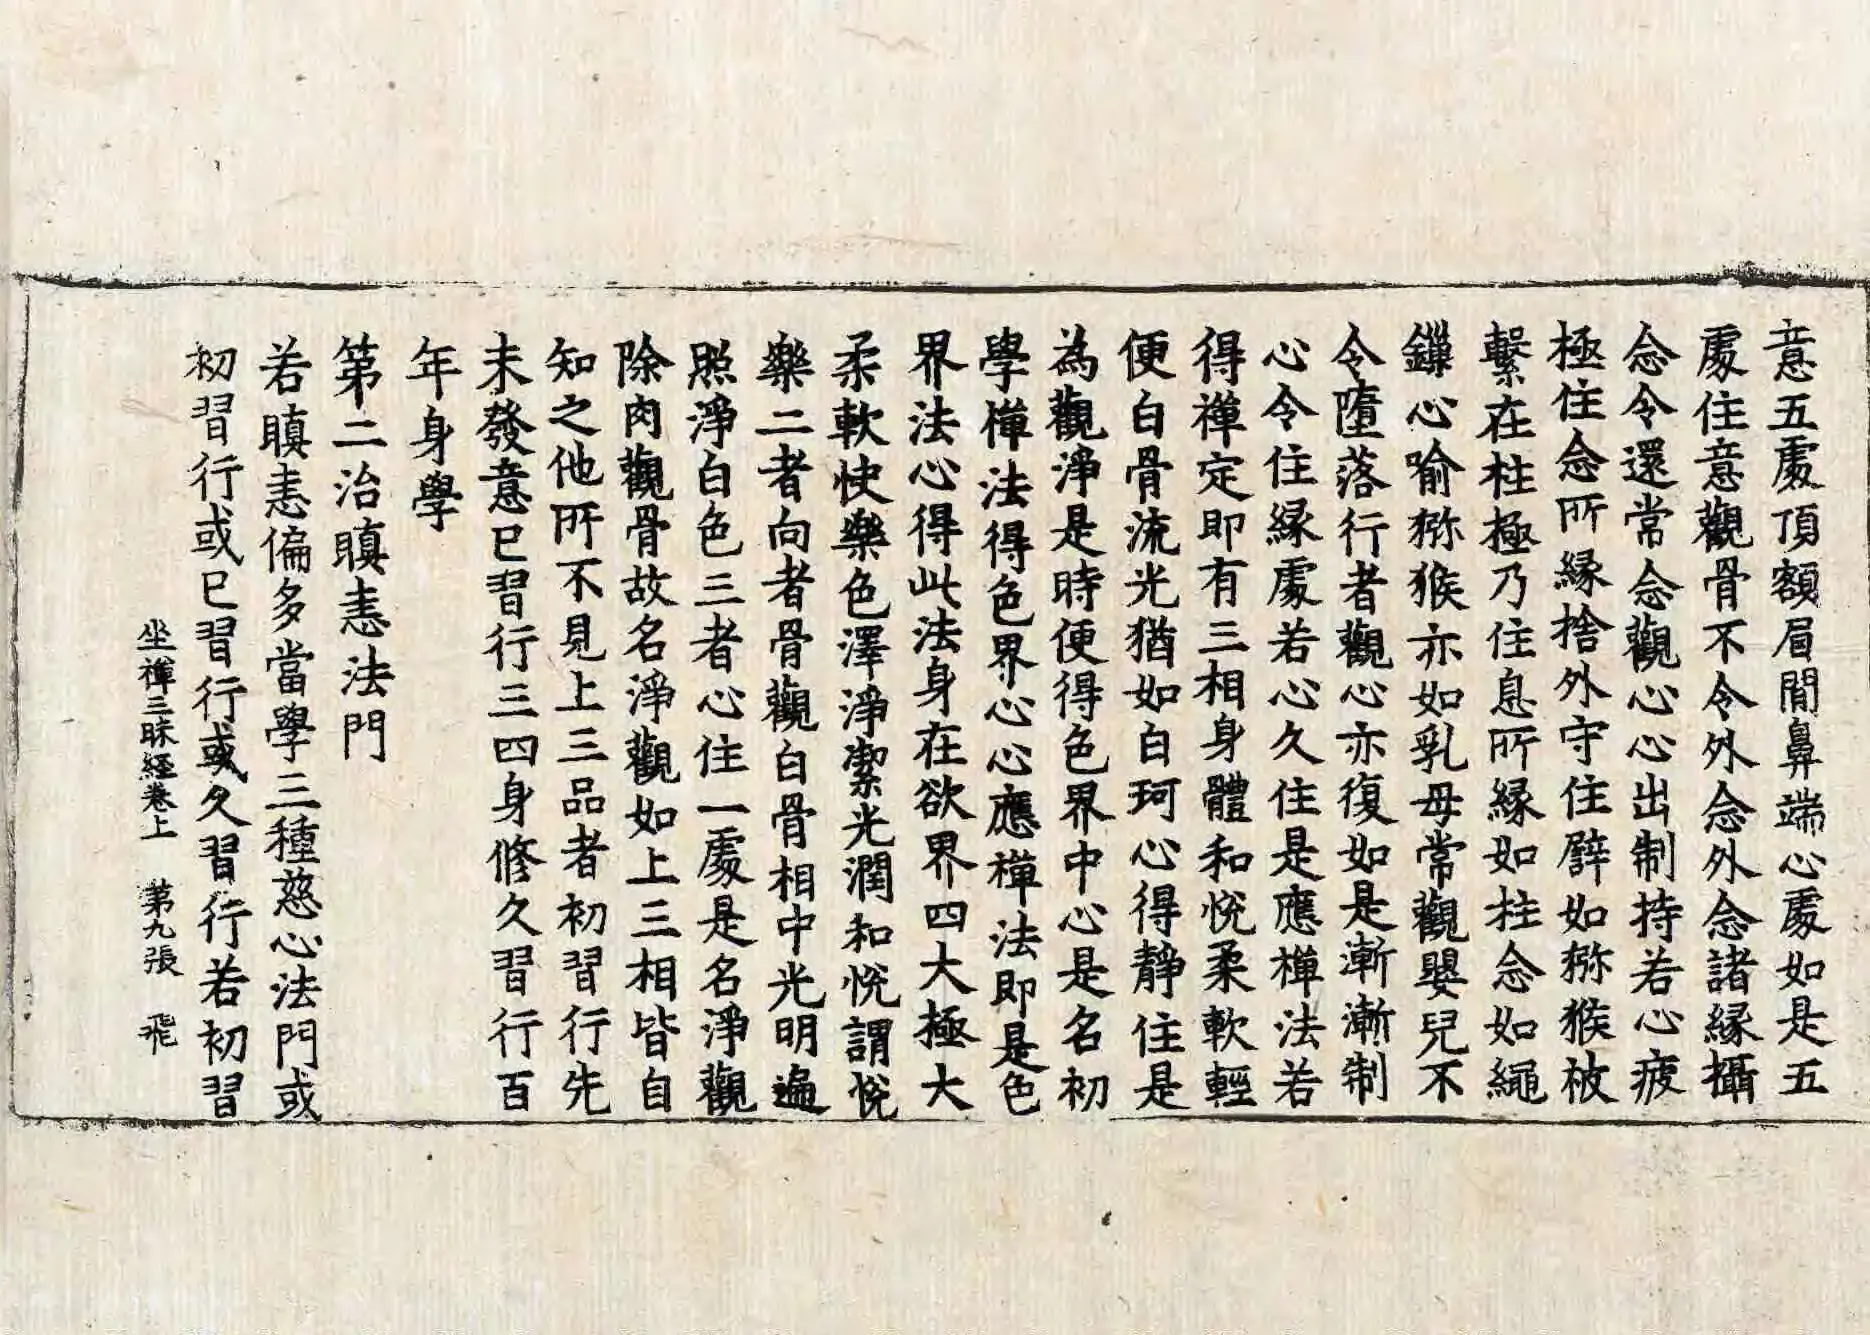 意五處頂額眉閒鼻端心處如是五
處住意觀骨不令外念外念諸縁攝
念令還常念觀心心出制持若心疲
極住念所縁捨外守住譬如猕猴被
繫在柱極乃住息所縁如柱念如繩
鏁心喻猕猴亦如乳母常觀嬰兒不
令墮落行者觀心亦復如是漸漸制
心令住縁處若心久住是應禪法若
得禪定即有三相身體和悅柔軟輕
便白骨流光猶如白珂心得靜住是
為觀淨是時便得色界中心是名初
學禪法得色界心心應禪法即是色
界法心得此法身在欲界四大極大
柔軟快樂色澤淨潔光潤和悅謂悅
樂二者向者骨觀白骨相中光明遍
照淨白色三者心住一處是名淨觀
除肉觀骨故名淨觀如上三相皆自
知之他所不見上三品者初習行先
未發意已習行三四身修久習行百
年身學
第二治瞋恚法門
若瞋恚偏多當學三種慈心法門或
初習行或已習行或久習行若初習
坐禪三昧經卷上　第九張　飛